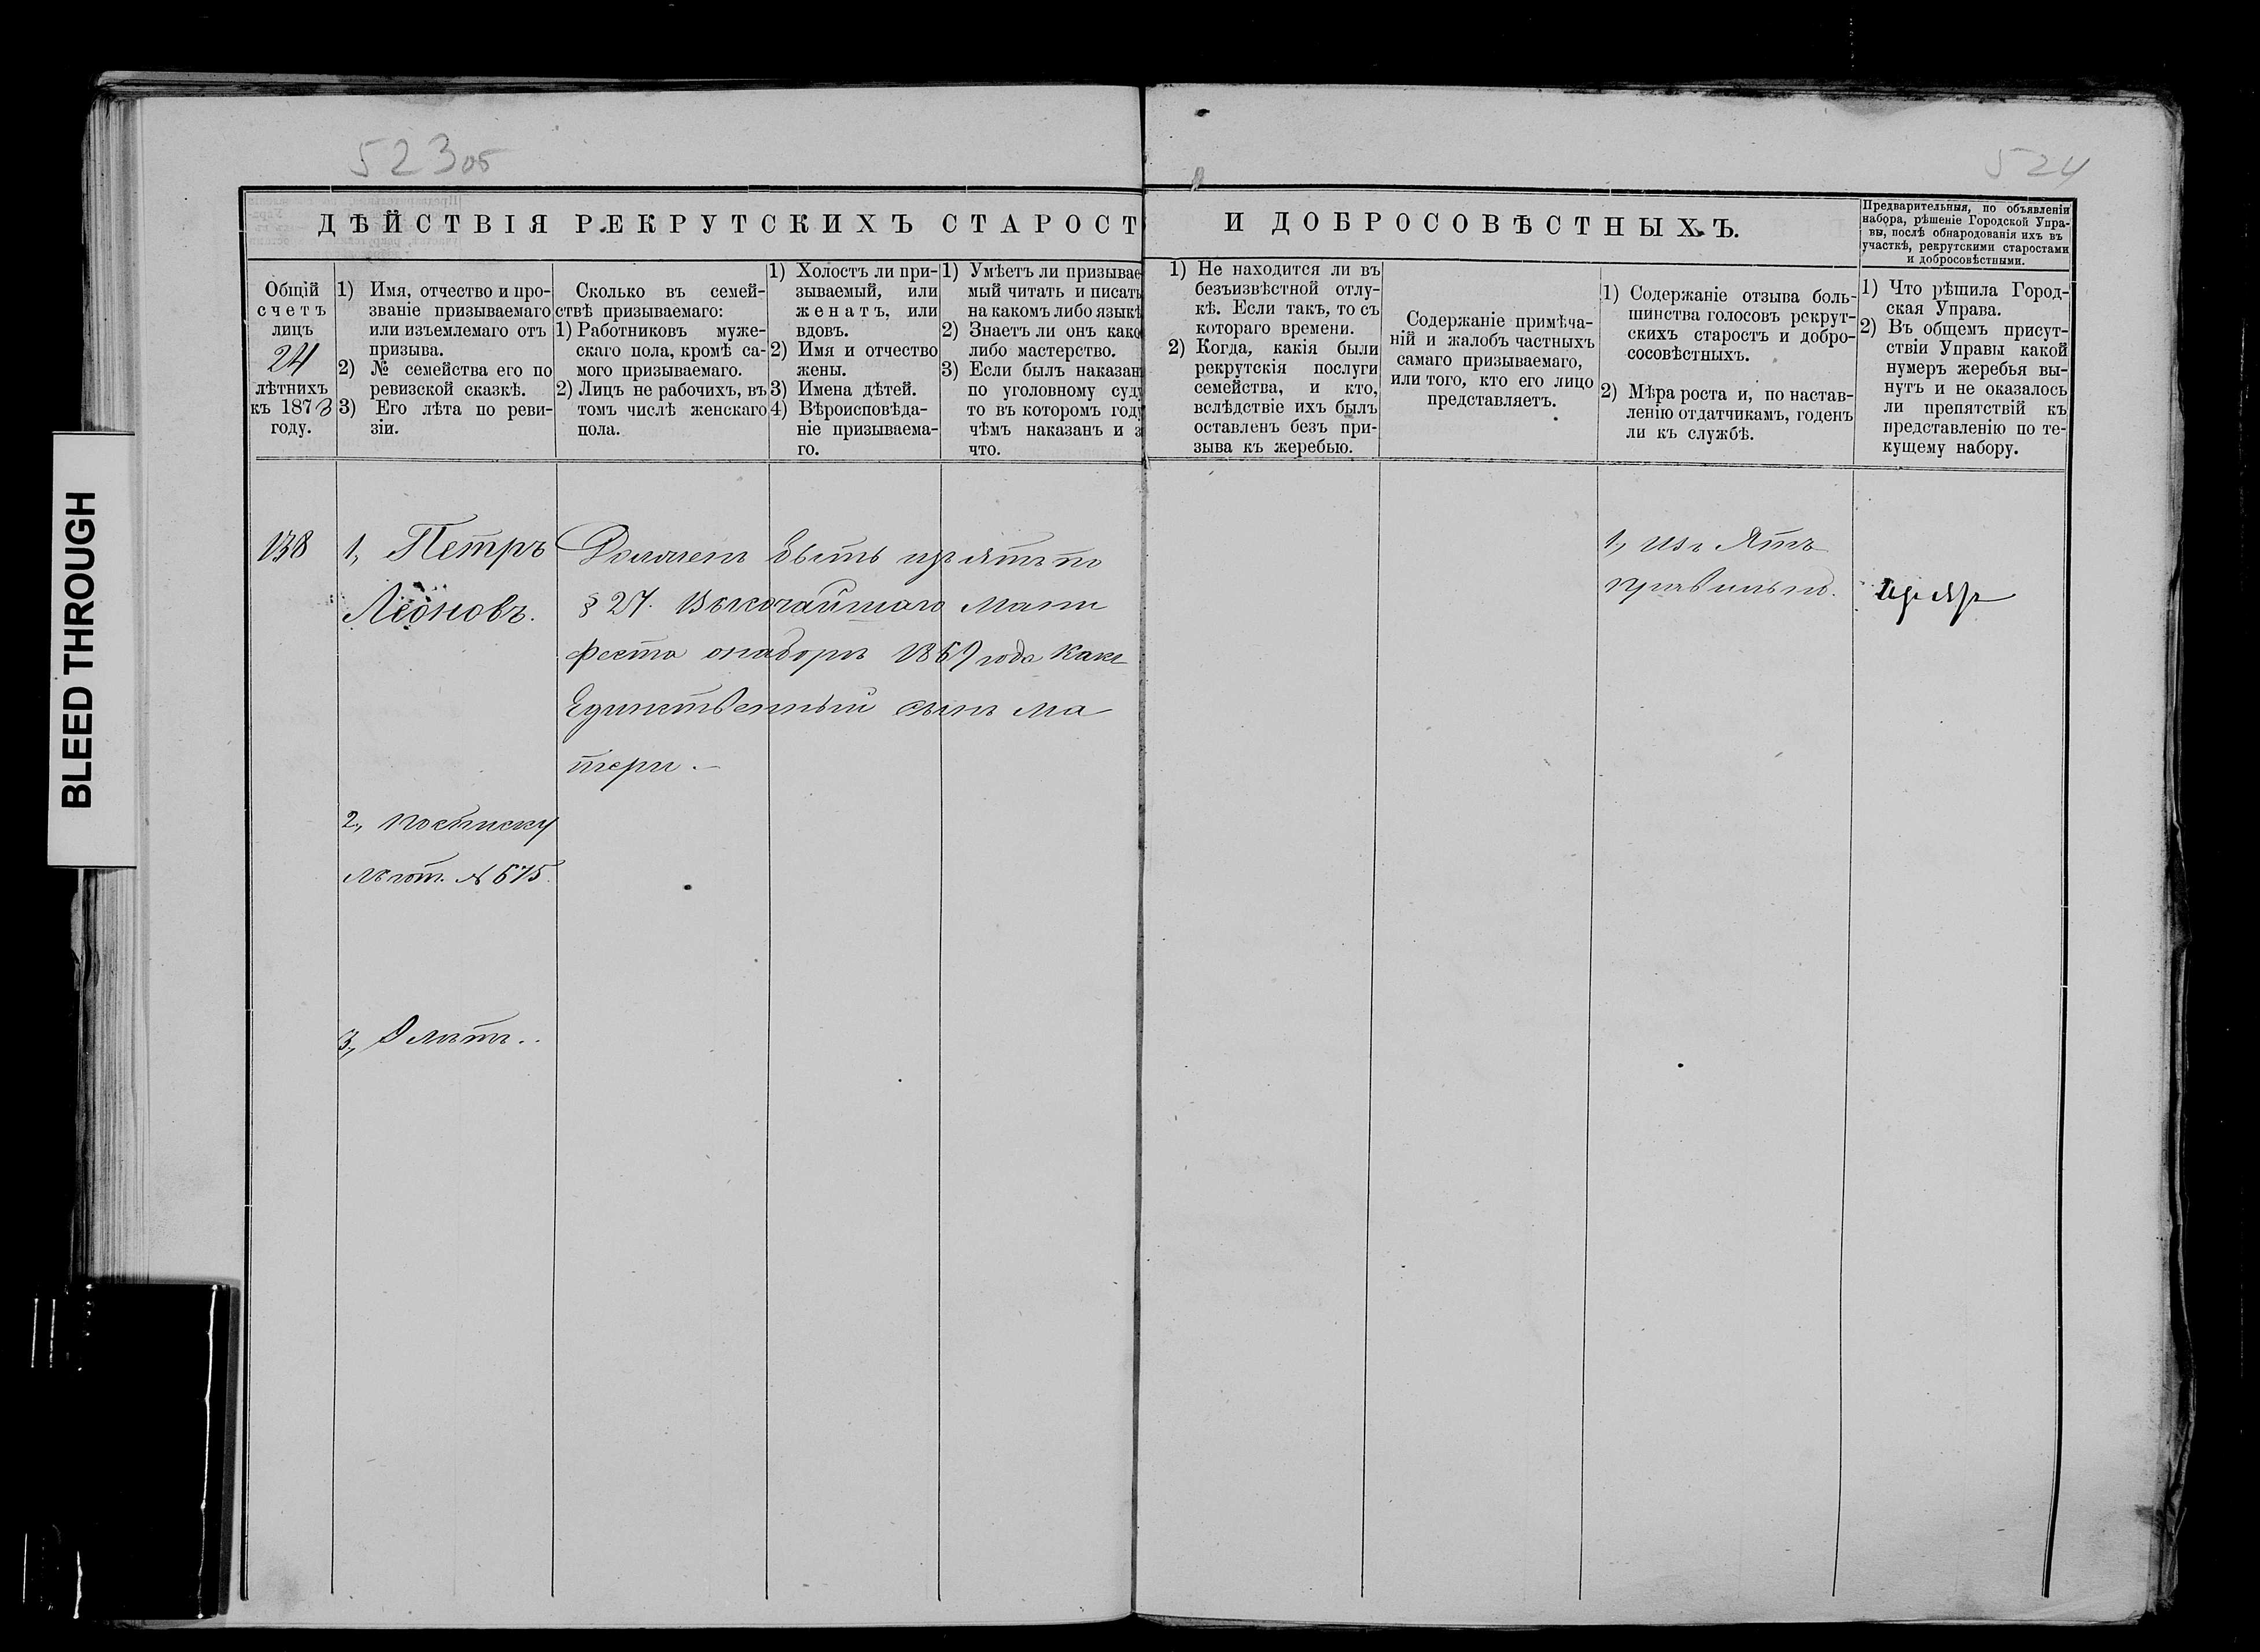 523 об
524
ДѢЙСТВІЯ РЕКРУТСКИХЪ СТАРОСТ
И ДОБРОСОВѢСТНЫХЪ.
Предварительныя, по объявленіи
набора, рѣшеніе Городской Упра-
вы, послѣ обнародованія ихъ въ
участкѣ, рекрутскими старостами
и добросовѣстными.
Общій
счетъ
лицъ
24
лѣтнихъ
къ 1873
году.
1) Имя, отчество и про-
званіе призываемаго
или изъемлемаго отъ
призыва.
2) № семейства его по
ревизской сказкѣ.
3) Его лѣта по реви-
зіи.
Сколько въ семей-
ствѣ призываемаго:
1) Работниковъ муже-
скаго пола, кромѣ са-
мого призываемаго.
2) Лицъ не рабочихъ, въ
томъ числѣ женскаго
пола.
1) Холостъ ли при-
зываемый, или
женатъ, или
вдовъ.
2) Имя и отчество
жены.
3) Имена дѣтей.
4) Вѣроисповѣда-
ніе призываема-
го.
1) Умѣетъ ли призывае
мый читать и писать
на какомъ либо языкѣ
2) Знаетъ ли онъ како
либо мастерство.
3) Если былъ наказан
по уголовному суду
то въ которомъ году
чѣмъ наказанъ и з
что.
1) Не находится ли въ
безъизвѣстной отлу-
кѣ. Если такъ, то съ
котораго времени.
2) Когда, какія были
рекрутскія послуги
семейства, и кто,
вслѣдствіе ихъ былъ
оставленъ безъ при-
зыва къ жеребью.
Содержаніе примѣча-
ній и жалобъ частныхъ
самаго призываемаго,
или того, кто его лицо
представляетъ.
1) Содержаніе отзыва боль-
шинства голосовъ рекрут-
скихъ старостъ и добро-
сосовѣстныхъ.
2) Мѣра роста и, по настав-
ленію отдатчикамъ, годенъ
ли къ службѣ.
1) Что рѣшила Город-
ская Управа.
2) Въ общемъ присут-
ствіи Управы какой
нумеръ жеребья вы-
нутъ и не оказалось
ли препятствій къ
представленію по те-
кущему набору.
138
1, Петръ
Леоновъ.
Долженъ быть изъятъ по
§ 27. Высочайшаго Мани
феста о наборѣ 1869 года Какъ
Единственный сынъ ма
тери. —
2, по списку
льгот. № 675.
3, 0 лѣтъ..
1, Изъятъ
правильно.
Изъят
BLEED THROUGH